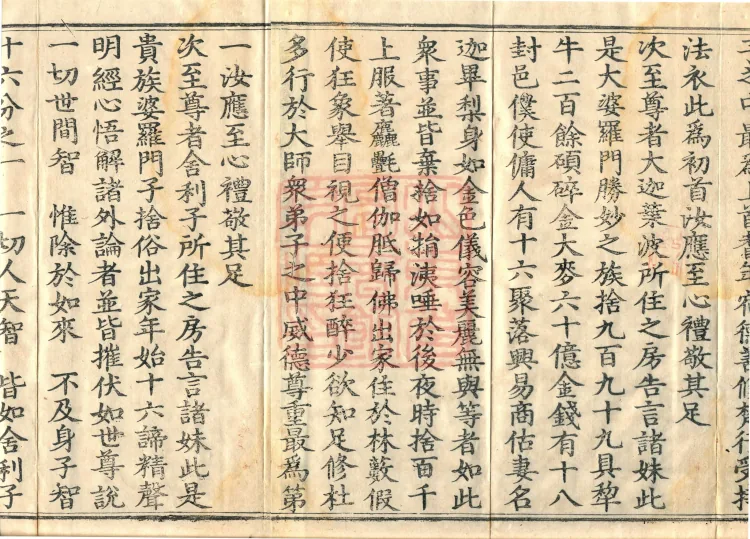 之中最為 首耆年宿德善修梵行受持
法衣此為初首汝應至心禮敬其足
次至尊者大迦葉波所住之房告言諸妹此
是大婆羅門勝妙之族捨九百九十九具犂
牛二百餘碩碎金大麥六十億金錢有十八
封邑僕使傭人有十六聚落興易商估妻名
迦畢梨身如金色儀容美麗無與等者如此
衆事並皆棄捨如捐洟唾於後夜時捨百千
上服著麤㲲僧伽胝歸佛出家住於林藪假
使狂象舉目視之便捨狂醉少欲知足修杜
多行於大師衆弟子之中威德尊重最為第
一汝應至心禮敬其足
次至尊者舍利子所住之房告言諸妹此是
貴族婆羅門子捨俗出家年始十六諦精聲
明經心悟解諸外論者並皆摧伏如世尊說
一切世間智　惟除於如來　不及身子智
十六分之一　一切人天智　皆如舍利子